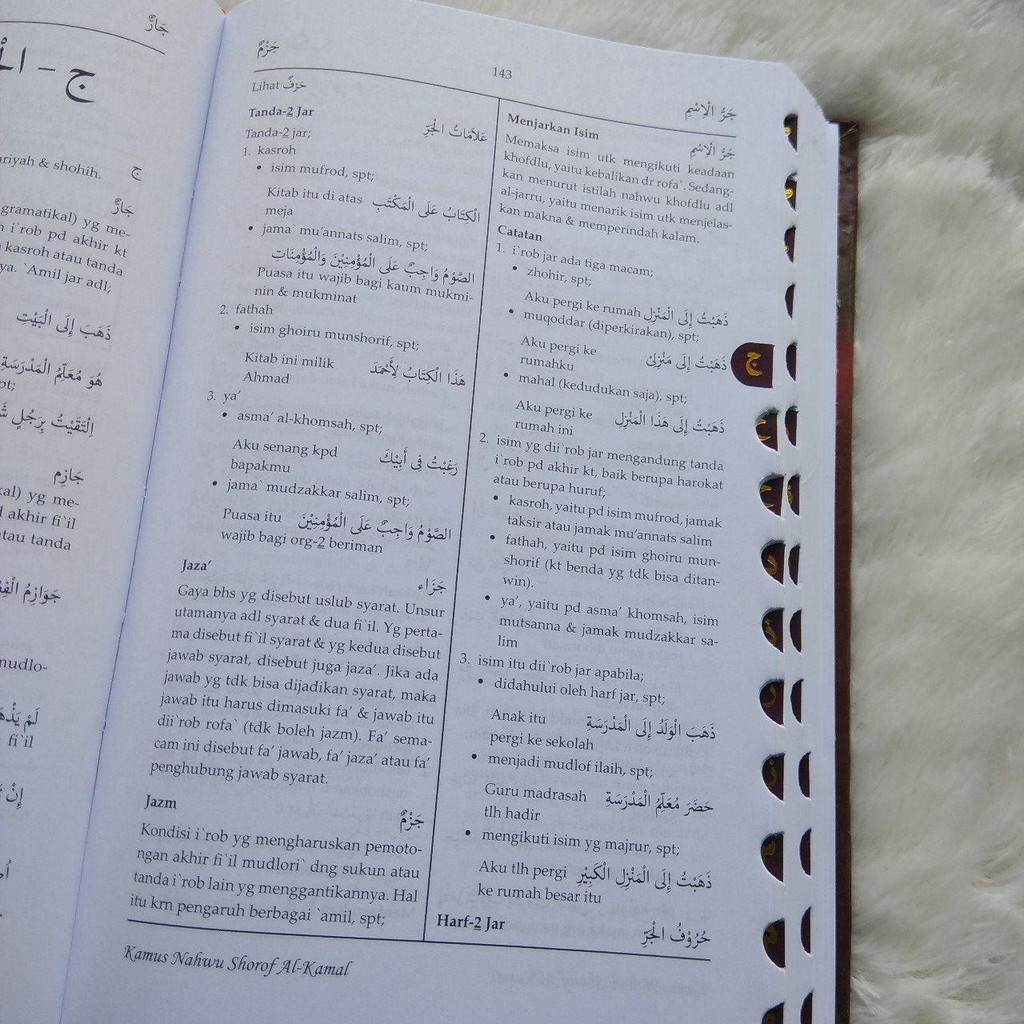 جَارٌّ
ج - الْ
ariyah & shohih.
ج
جَارٌّ
gramatikal) yg me-
n i`rob pd akhir kt
kasroh atau tanda
ya. `Amil jar adl;
ذَهَبَ إِلَى الْبَيْتِ
هُوَ مُعَلِّمُ الْمَدْرَسَةِ
pt;
اِلْتَقَيْتُ بِرَجُلٍ
جَازِم
kal) yg me-
l akhir fi`il
atau tanda
جَوَازِمُ
mudlo-
لَمْ
fi`il
إِنْ
جَزْمٌ
143
جَرُّ الْاِسْمِ
Lihat حَرْفٌ
Tanda-2 Jar
Tanda-2 jar; عَلاَمَاتُ الْجَرِّ
1. kasroh
• isim mufrod, spt;
Kitab itu di atas الْكِتَابُ عَلَى الْمَكْتَبِ
meja
• jama` mu'annats salim, spt;
الصَّوْمُ وَاجِبٌ عَلَى الْمُؤْمِنِيْنَ وَالْمُؤْمِنَاتِ
Puasa itu wajib bagi kaum mukmi-
nin & mukminat
2. fathah
• isim ghoiru munshorif, spt;
Kitab ini milik هَذَا الْكِتَابُ لِأَحْمَدَ
Ahmad
3. ya'
• asma' al-khomsah, spt;
Aku senang kpd رَغِبْتُ فِى أَبِيْكَ
bapakmu
• jama` mudzakkar salim, spt;
Puasa itu الصَّوْمُ وَاجِبٌ عَلَى الْمُؤْمِنِيْنَ
wajib bagi org-2 beriman
Jaza'
جَزَاء
Gaya bhs yg disebut uslub syarat. Unsur
utamanya adl syarat & dua fi`il. Yg perta-
ma disebut fi`il syarat & yg kedua disebut
jawab syarat, disebut juga jaza'. Jika ada
jawab yg tdk bisa dijadikan syarat, maka
jawab itu harus dimasuki fa' & jawab itu
dii`rob rofa` (tdk boleh jazm). Fa' sema-
cam ini disebut fa' jawab, fa' jaza' atau fa'
penghubung jawab syarat.
Jazm
جَزْمٌ
Kondisi i`rob yg mengharuskan pemoto-
ngan akhir fi`il mudlori` dng sukun atau
tanda i`rob lain yg menggantikannya. Hal
itu krn pengaruh berbagai `amil, spt;
Menjarkan Isim
جَرُّ الْاِسْمِ
Memaksa isim utk mengikuti keadaan
khofdlu, yaitu kebalikan dr rofa`. Sedang-
kan menurut istilah nahwu khofdlu adl
al-jarru, yaitu menarik isim utk menjelas-
kan makna & memperindah kalam.
Catatan
1. i`rob jar ada tiga macam;
• zhohir, spt;
Aku pergi ke rumah ذَهَبْتُ إِلَى الْمَنْزِلِ
• muqoddar (diperkirakan), spt;
Aku pergi ke ذَهَبْتُ إِلَى مَنْزِلِيْ
rumahku
• mahal (kedudukan saja), spt;
Aku pergi ke ذَهَبْتُ إِلَى هَذَا الْمَنْزِلِ
rumah ini
2. isim yg dii`rob jar mengandung tanda
i`rob pd akhir kt, baik berupa harokat
atau berupa huruf;
• kasroh, yaitu pd isim mufrod, jamak
taksir atau jamak mu'annats salim
• fathah, yaitu pd isim ghoiru mun-
shorif (kt benda yg tdk bisa ditan-
win).
• ya', yaitu pd asma' khomsah, isim
mutsanna & jamak mudzakkar sa-
lim
3. isim itu dii`rob jar apabila;
• didahului oleh harf jar, spt;
Anak itu ذَهَبَ الْوَلَدُ إِلَى الْمَدْرَسَةِ
pergi ke sekolah
• menjadi mudlof ilaih, spt;
Guru madrasah حَضَرَ مُعَلِّمُ الْمَدْرَسَةِ
tlh hadir
• mengikuti isim yg majrur, spt;
Aku tlh pergi ذَهَبْتُ إِلَى الْمَنْزِلِ الْكَبِيْرِ
ke rumah besar itu
Harf-2 Jar حُرُوْفُ الْجَرِّ
Kamus Nahwu Shorof Al-Kamal
ج